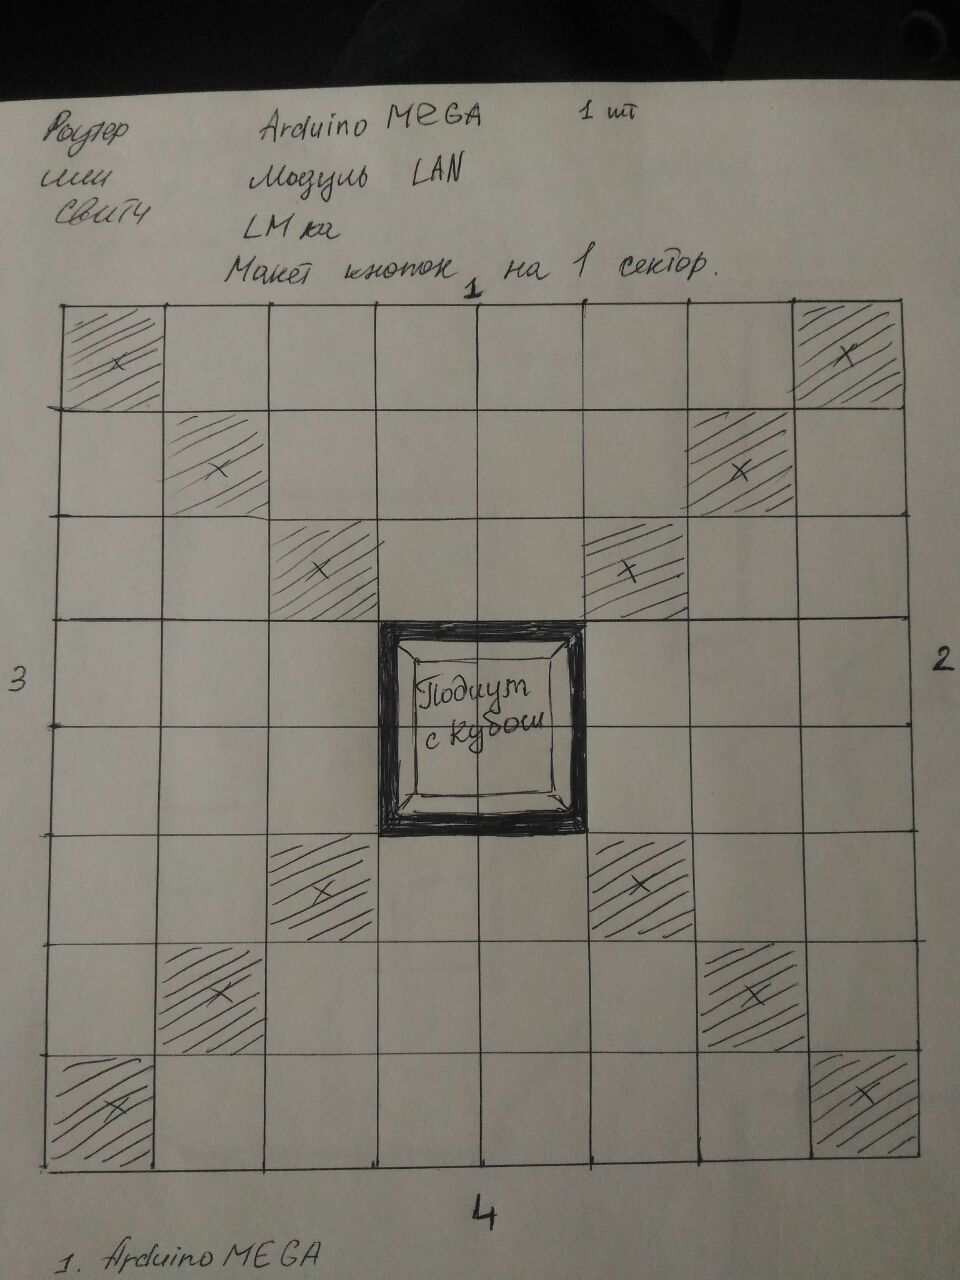 Роутер
или
свитч
Arduino MEGA 1 шт
Модуль LAN
LM ка
Макет кнопок на 1 сектор.
1
x x
x x
x x
3
Подиум
с Кубом
2
x x
x x
x x
4
1. Arduino MEGA